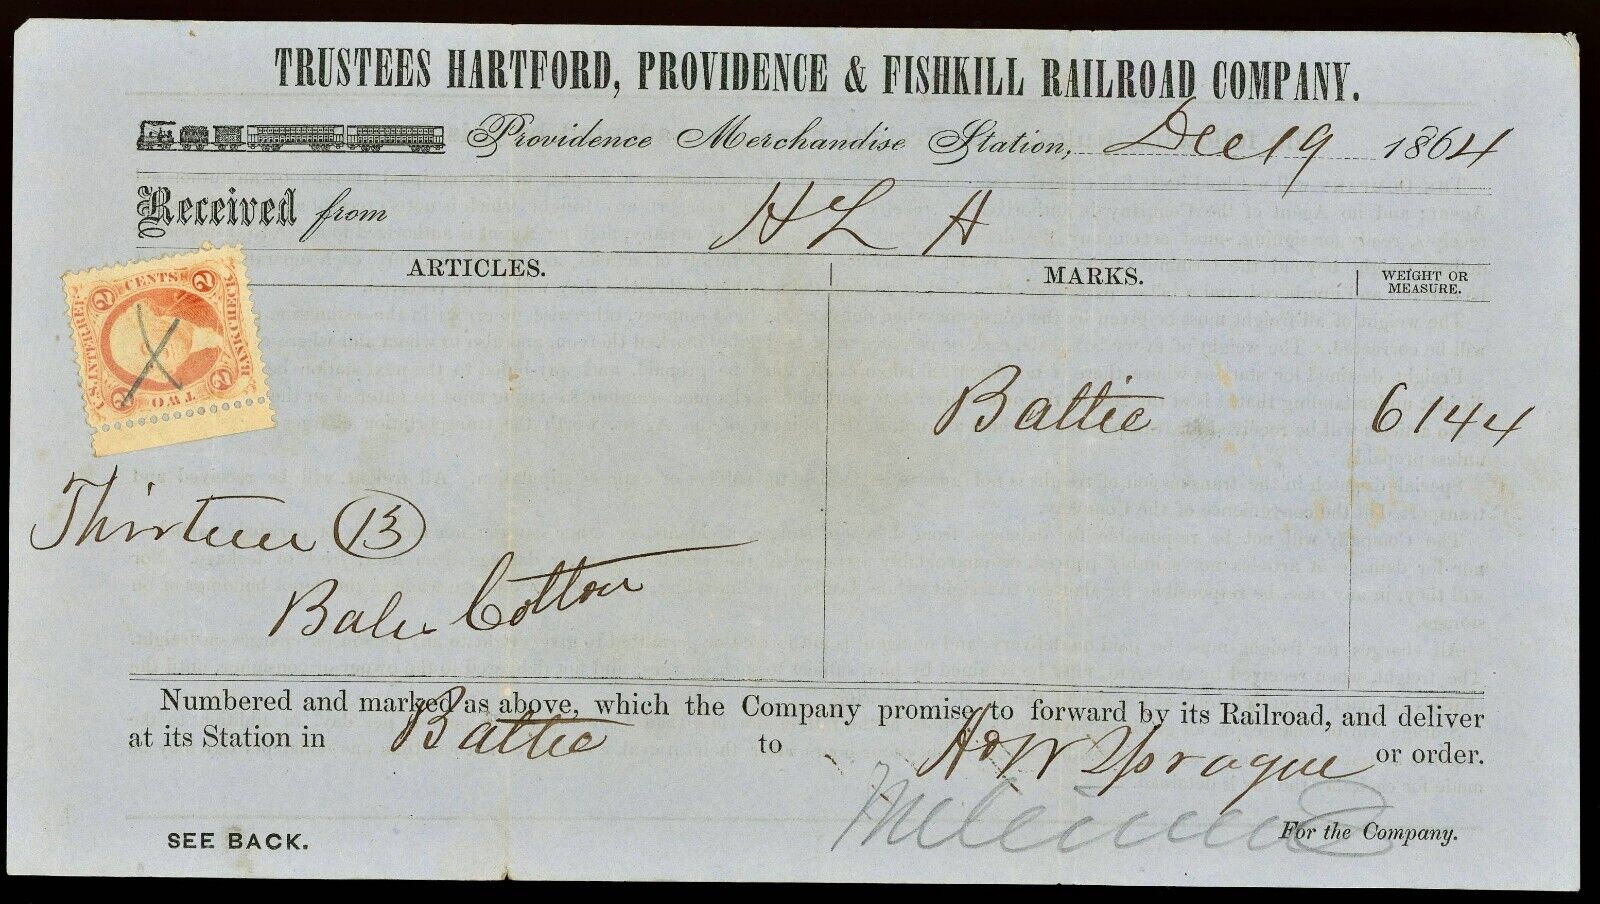 TRUSTEES HARTFORD, PROVIDENCE & FISHKILL RAILROAD COMPANY.
Providence Merchandise Station, Dec 19 1864
Received from H L A
ARTICLES. MARKS. WEIGHT OR MEASURE.
U.S. INTER. REV.
2 CENTS 2
BANK CHECK
2 TWO 2
X
Baltic 6144
Thirteen (13)
Bales Cotton
Numbered and marked as above, which the Company promise to forward by its Railroad, and deliver
at its Station in Baltic to A & W Sprague or order.
SEE BACK. For the Company.